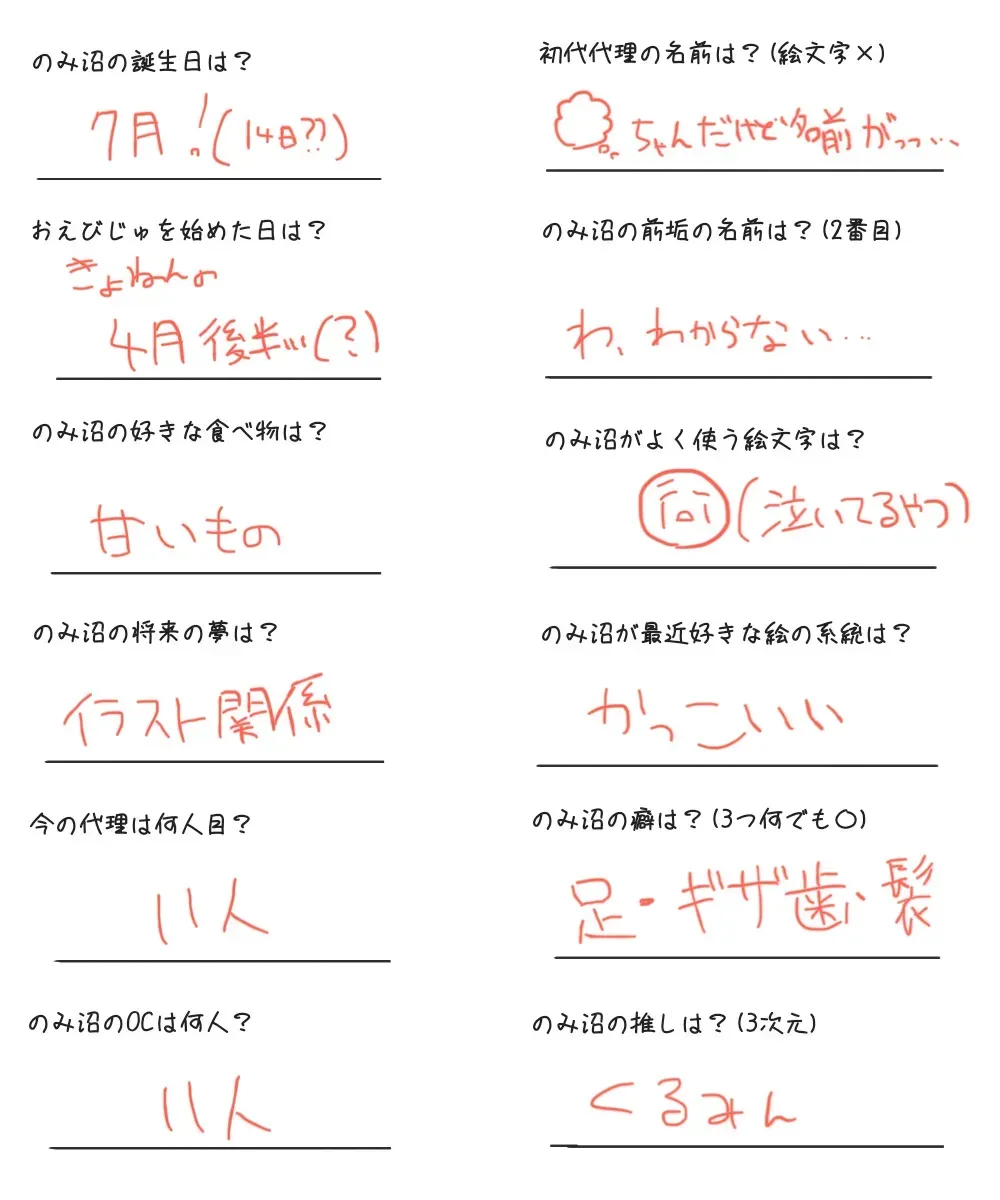 のみ沼の誕生日は？
7月！(14日??)
おえびじゅを始めた日は？
きょねんの
4月後半…(？)
のみ沼の好きな食べ物は？
甘いもの
のみ沼の将来の夢は？
イラスト関係
今の代理は何人目？
11人
のみ沼のOCは何人？
11人
初代代理の名前は？(絵文字×)
ちゃんだけど名前がっっ…
のみ沼の前垢の名前は？(2番目)
わ、わからない…
のみ沼がよく使う絵文字は？
(泣いてるやつ)
のみ沼が最近好きな絵の系統は？
かっこいい
のみ沼の癖は？(3つ何でも〇)
足・ギザ歯・髪
のみ沼の推しは？(3次元)
くるみん